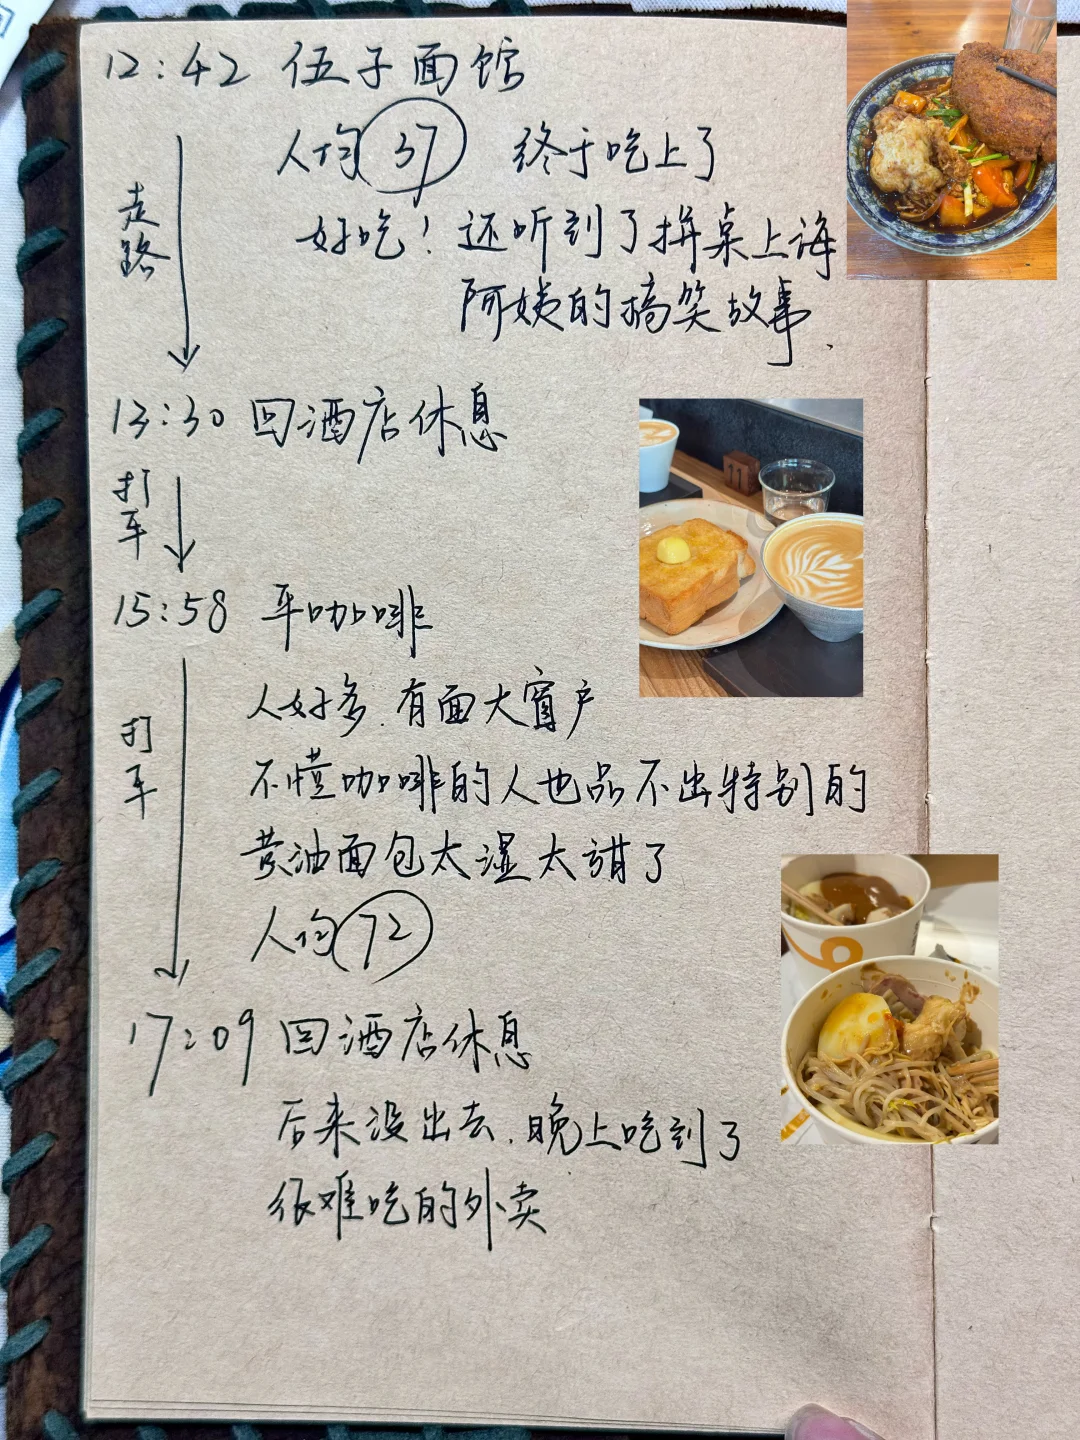 12:42 伍子面馆
人均 37 终于吃上了
好吃！还听到了拼桌上海
阿姨的搞笑故事.
走路
13:30 回酒店休息
打车
15:58 平咖啡
人好多.有面大窗户
不懂咖啡的人也品不出特别的
黄油面包太湿太甜了
人均 72
打车
17:09 回酒店休息
后来没出去.晚上吃到了
很难吃的外卖
11